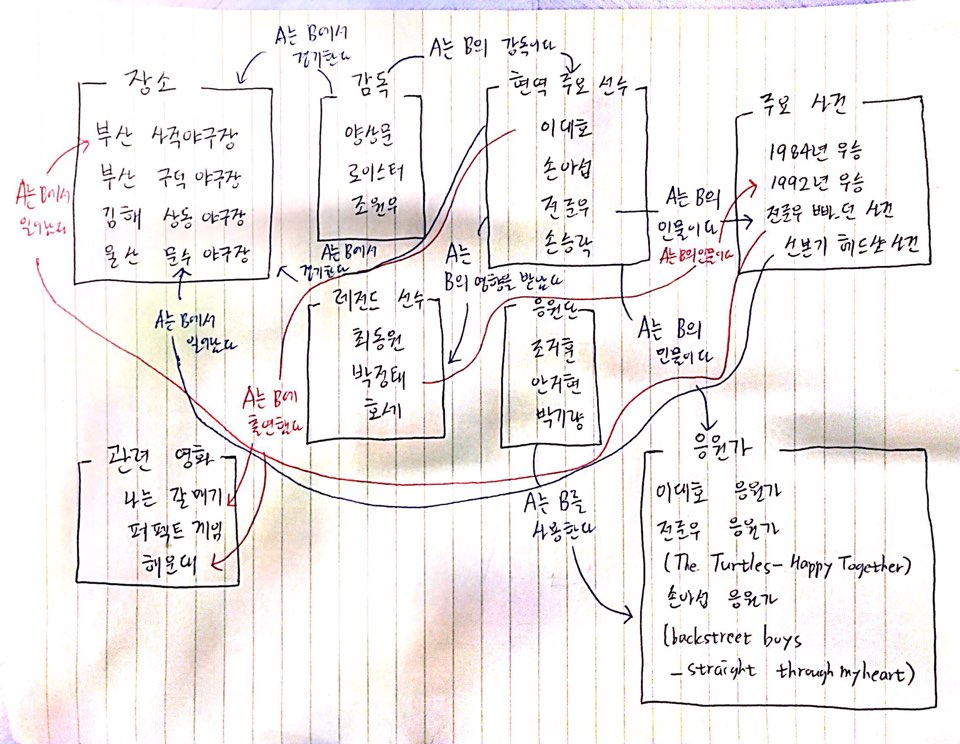 A는 B에서
경기한다
A는 B의 감독이다
장소
부산 사직야구장
부산 구덕 야구장
김해 상동 야구장
울산 문수 야구장
감독
양상문
로이스터
조원우
현역 주요 선수
이대호
손아섭
전준우
손승락
주요 사건
1984년 우승
1992년 우승
전준우 빠던 사건
선분기 헤드샷 사건
A는 B에서
일어났다
A는 B에서
경기한다
A는
B의 영향을 받았다
A는 B의
인물이다
A는 B의 인물이다
A는 B에서
일어났다
레전드 선수
최동원
박정태
호세
응원단
조지훈
안지현
박기량
A는 B의
인물이다
A는 B에
출연했다
관련 영화
나는 갈매기
퍼펙트 게임
해운대
A는 B를
사용한다
응원가
이대호 응원가
전준우 응원가
(The Turtles - Happy Together)
손아섭 응원가
(backstreet boys
- straight through my heart)